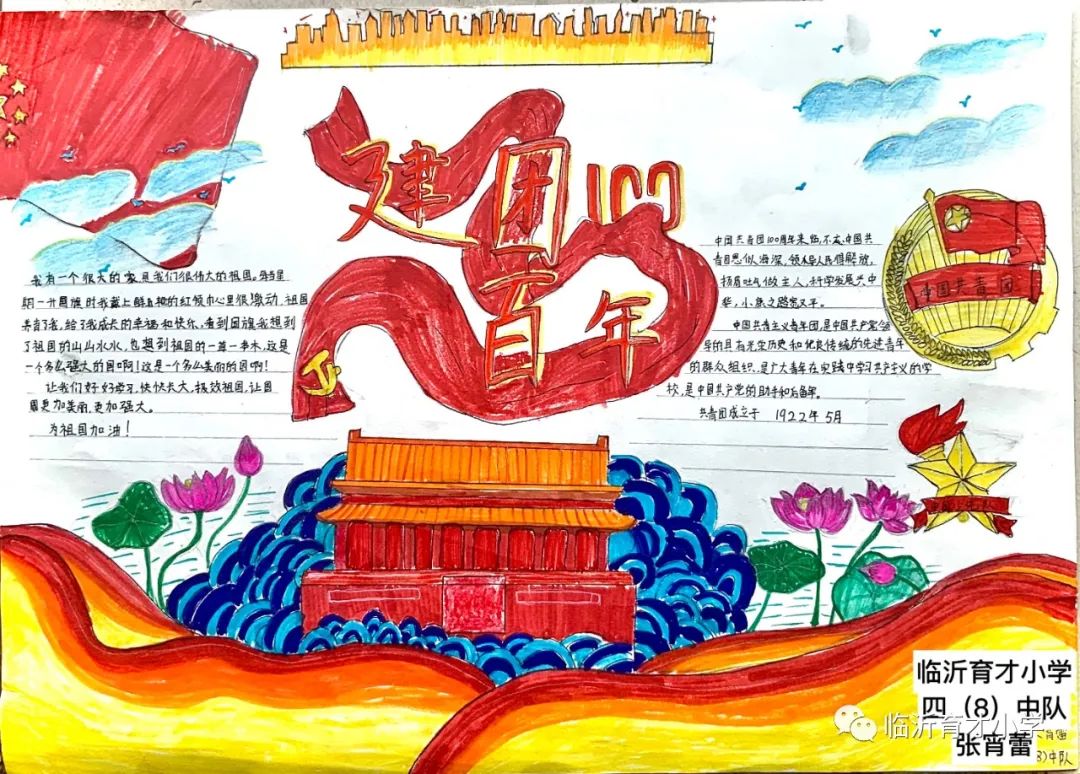 建团
100
百年
我有一个很大的家是我们很伟大的祖国。每当星
期一升国旗时我戴上鲜艳的红领巾心里很激动,祖国
养育了我,给了我成长的幸福和快乐、看到国旗我想到
了祖国的山山水水,也想到祖国的一草一木,这是
一个多么强大的国啊!这是一个多么美丽的国啊!
让我们好好学习,快快长大,报效祖国,让国
更加美丽,更加强大。
为祖国加油!
中国共青团100周年来临,不忘中国共
青团恩似海深,领导人民得解放,
扬眉吐气做主人,科学发展兴中
华,小康之路宽又平。
中国共产主义青年团,是中国共产党领
导的具有光荣历史和优良传统的先进青年
的群众组织,是广大青年在实践中学习共产主义的学
校,是中国共产党的助手和后备军。
共青团成立于 1922年5月
中国共青团
临沂育才小学
四(8)中队
张宵蕾
临沂育才小学